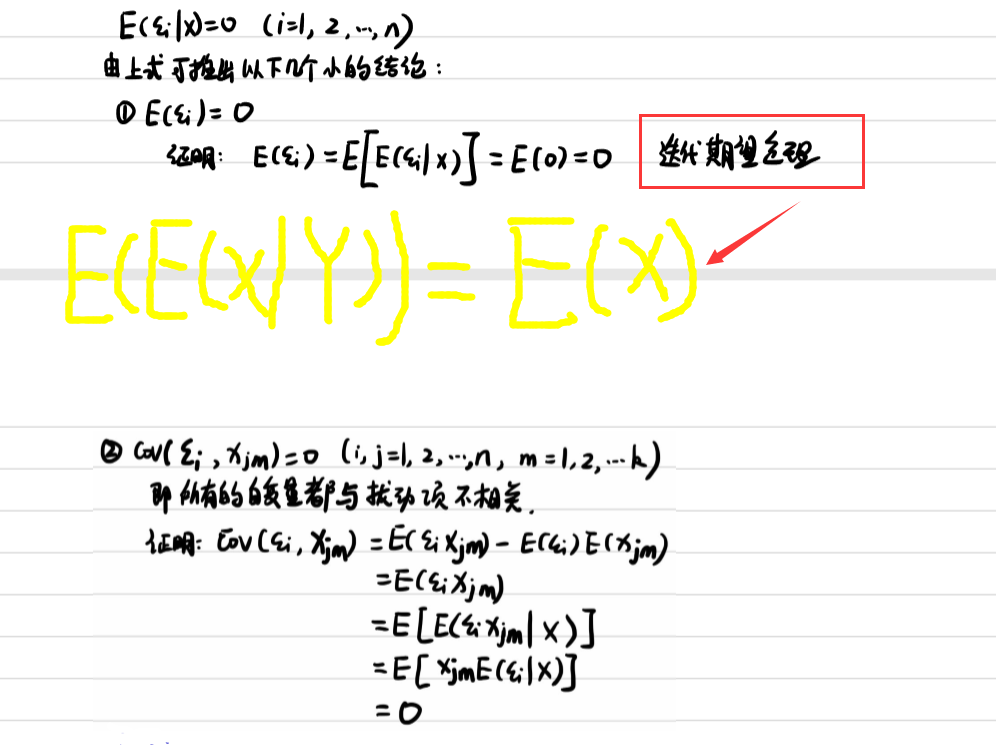 E(εi|x)=0 (i=1, 2, ..., n)
由上式可推出以下几个小的结论:
① E(εi)=0
证明: E(εi)=E[E(εi|x)]=E(0)=0 迭代期望定理
E(E(X|Y))=E(X)
② Cov(εi, xjm)=0 (i, j=1, 2, ..., n, m=1, 2, ...k)
即所有的自变量都与扰动项不相关.
证明: Cov(εi, xjm)=E(εi xjm)-E(εi)E(xjm)
=E(εi xjm)
=E[E(εi xjm|x)]
=E[xjmE(εi|x)]
=0